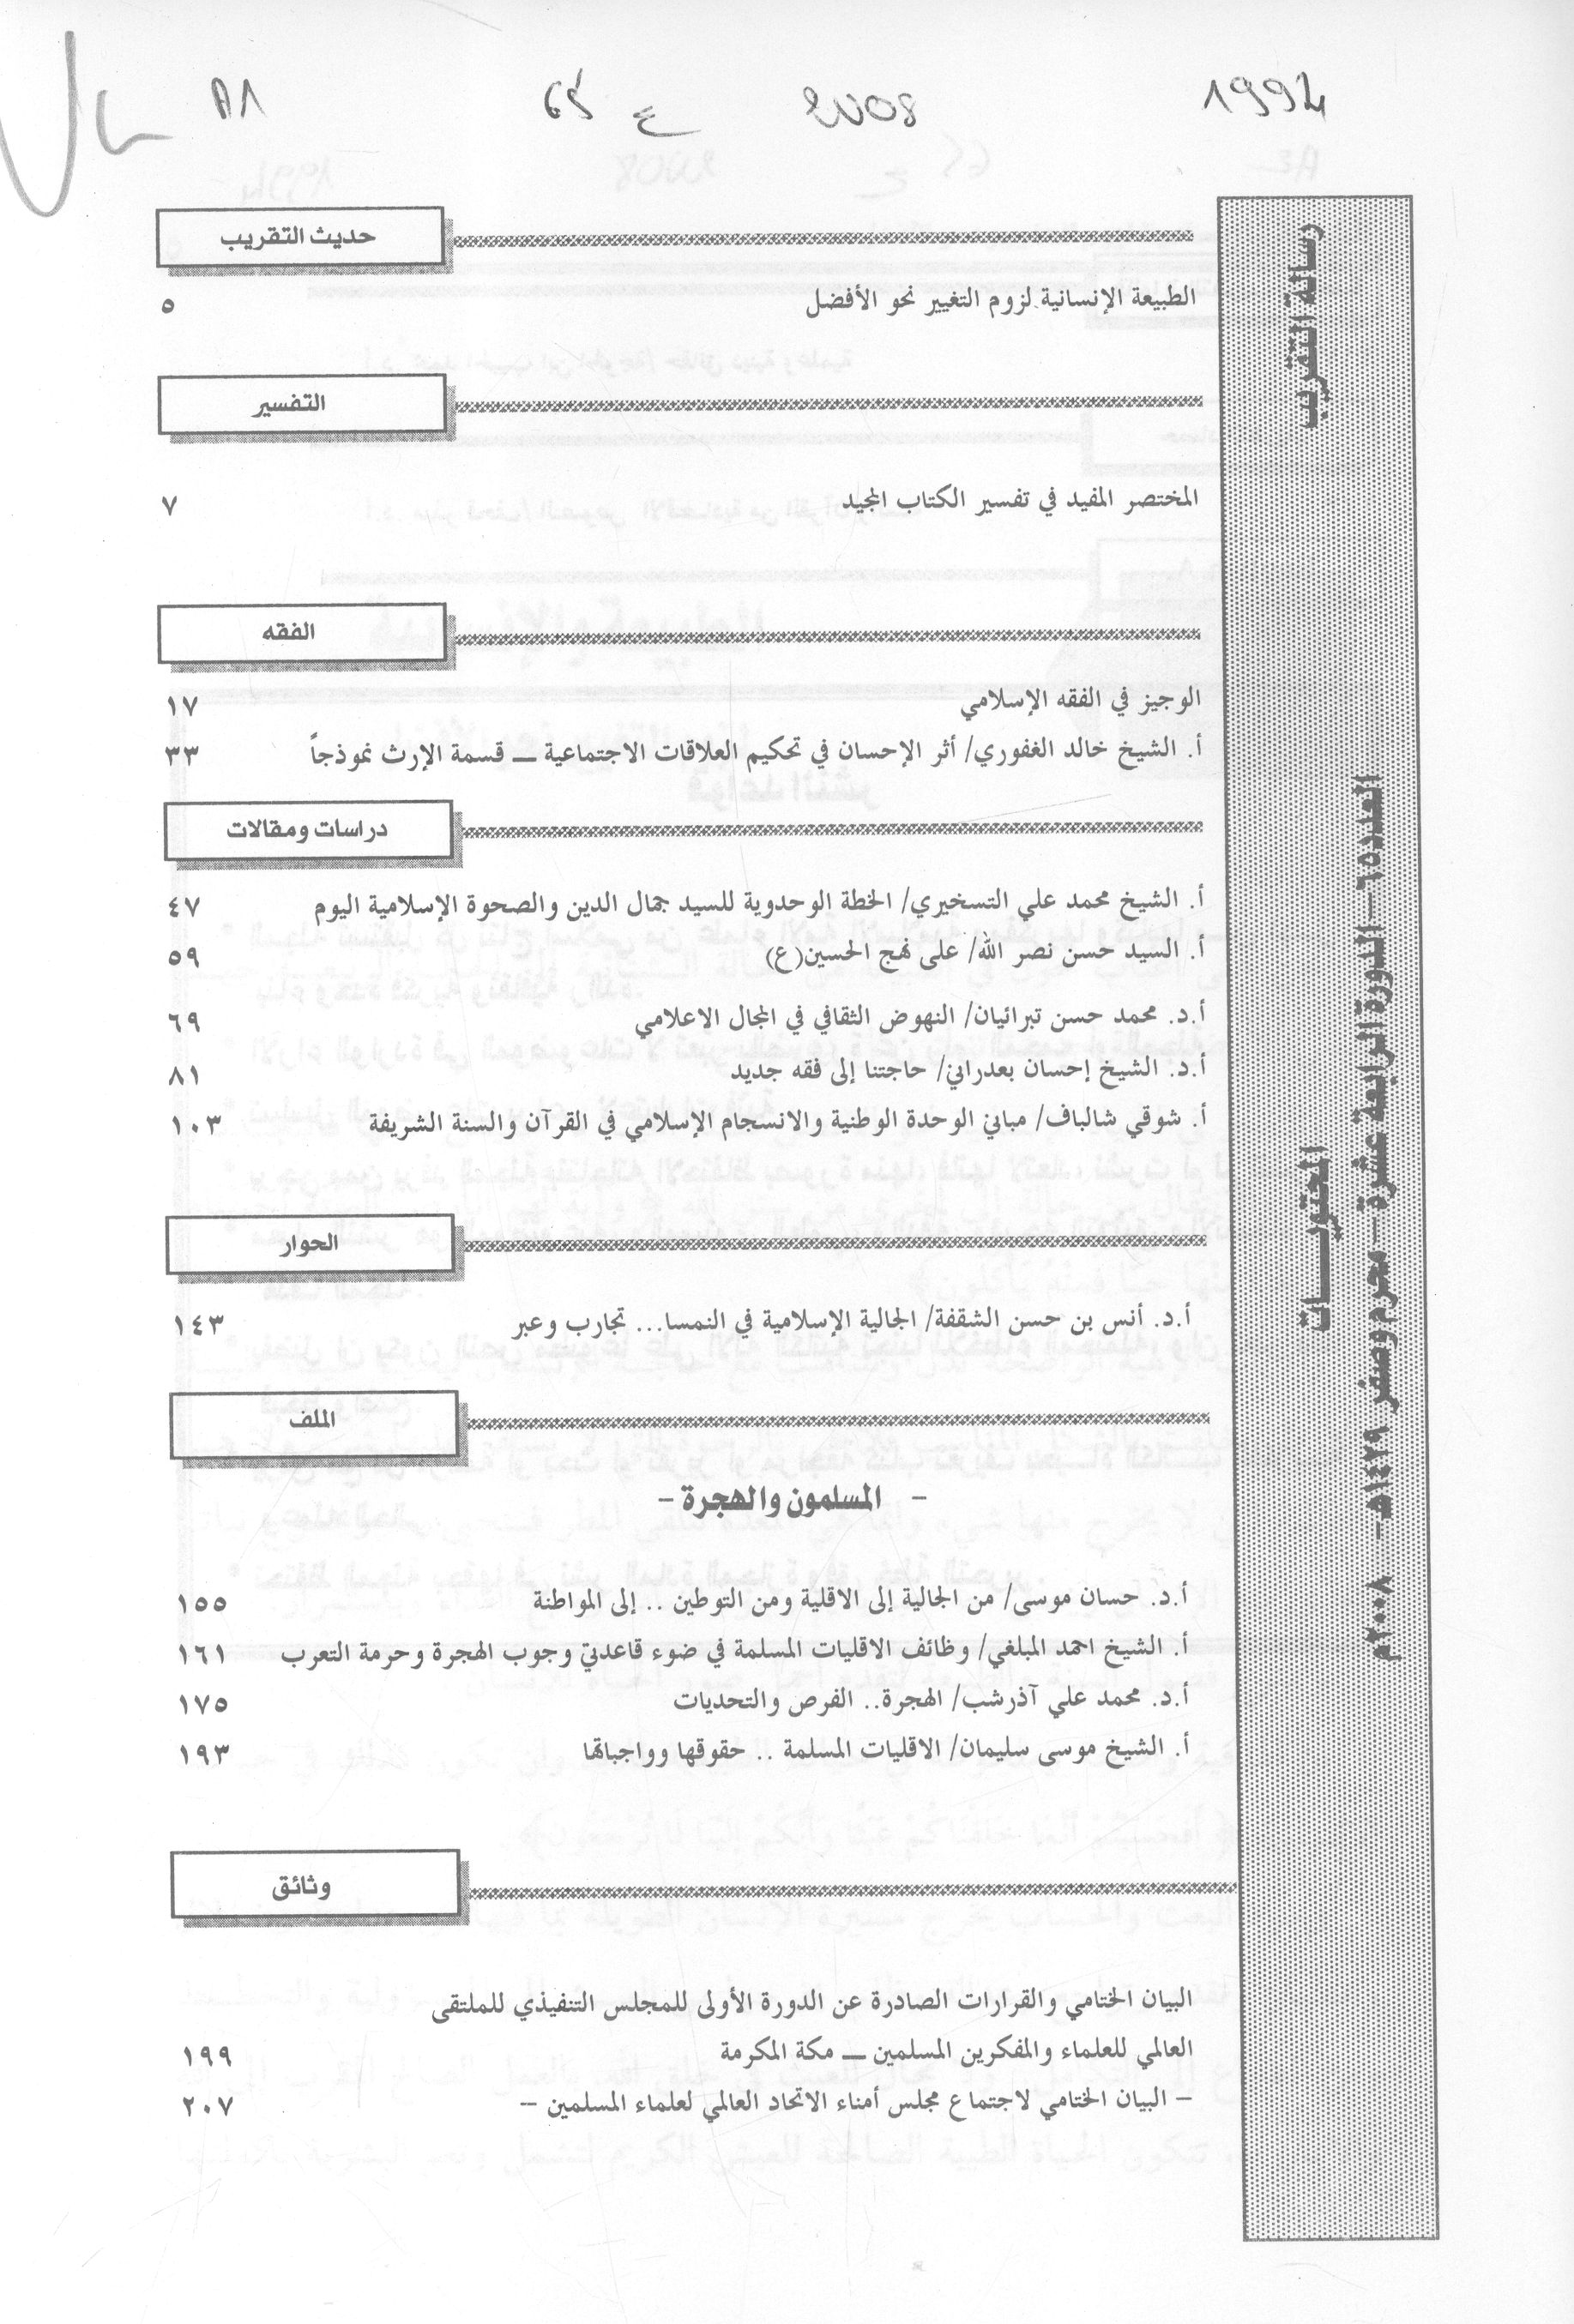 1994
2008
65 ع
A1
رسالة التقريب
العدد ٦٥ - الدورة الرابعة عشرة - محرم وصفر ١٤٢٩هـ - ٢٠٠٨م
المحتويـــات
حديث التقريب
الطبيعة الإنسانية لزوم التغيير نحو الأفضل ٥
التفسير
المختصر المفيد في تفسير الكتاب المجيد ٧
الفقه
الوجيز في الفقه الإسلامي ١٧
أ. الشيخ خالد الغفوري/ أثر الإحسان في تحكيم العلاقات الاجتماعية ـــ قسمة الإرث نموذجاً ٣٣
دراسات ومقالات
أ. الشيخ محمد علي التسخيري/ الخطة الوحدوية للسيد جمال الدين والصحوة الإسلامية اليوم ٤٧
أ. السيد حسن نصر الله/ على نهج الحسين(ع) ٥٩
أ.د. محمد حسن تبرائيان/ النهوض الثقافي في المجال الاعلامي ٦٩
أ.د. الشيخ إحسان بعدراني/ حاجتنا إلى فقه جديد ٨١
أ. شوقي شالباف/ مباني الوحدة الوطنية والانسجام الإسلامي في القرآن والسنة الشريفة ١٠٣
الحوار
أ.د. أنس بن حسن الشقفة/ الجالية الإسلامية في النمسا... تجارب وعبر ١٤٣
الملف
- المسلمون والهجرة -
أ.د. حسان موسى/ من الجالية إلى الاقلية ومن التوطين .. إلى المواطنة ١٥٥
أ. الشيخ احمد المبلغي/ وظائف الاقليات المسلمة في ضوء قاعدتي وجوب الهجرة وحرمة التعرب ١٦١
أ.د. محمد علي آذرشب/ الهجرة.. الفرص والتحديات ١٧٥
أ. الشيخ موسى سليمان/ الاقليات المسلمة .. حقوقها وواجباتها ١٩٣
وثائق
البيان الختامي والقرارات الصادرة عن الدورة الأولى للمجلس التنفيذي للملتقى
العالمي للعلماء والمفكرين المسلمين ـــ مكة المكرمة ١٩٩
– البيان الختامي لاجتماع مجلس أمناء الاتحاد العالمي لعلماء المسلمين – ٢٠٧